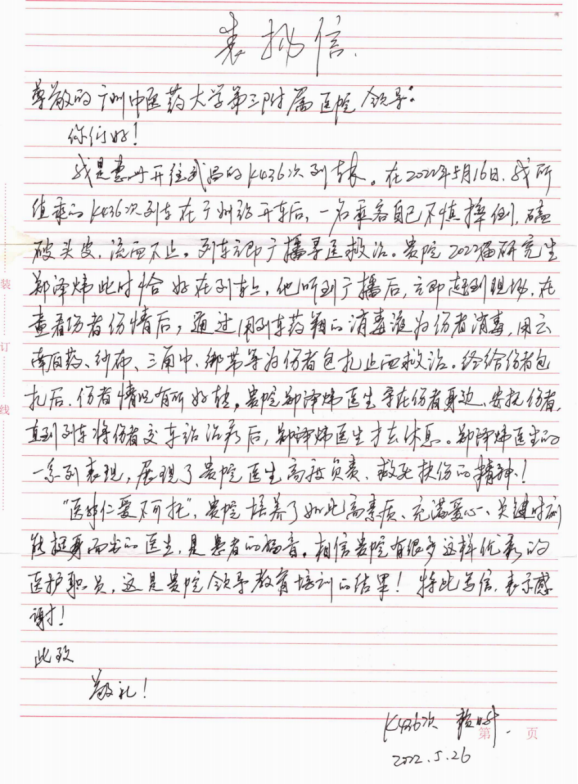 表扬信
尊敬的广州中医药大学第三附属医院领导:
你们好!
我是惠州开往武昌的K436次列车长。在2022年5月16日,我所
值乘的K436次列车在广州站开车后,一名乘客自己不慎摔倒,磕
破头皮,流血不止。列车立即广播寻医救治。贵院2022届研究生
郑泽炜此时恰好在列车上,他听到广播后,立即赶到现场,在
查看伤者伤情后,通过用列车药箱的消毒液为伤者消毒,用云
南白药、纱布、三角巾、绑带等为伤者包扎止血救治。经给伤者包
扎后,伤者情况有所好转。贵院郑泽炜医生守在伤者身边、安抚伤者,
直到列车将伤者交车站治疗后,郑泽炜医生才去休息。郑泽炜医生的
一系列表现,展现了贵院医生高度负责、救死扶伤的精神!
“医乃仁爱不可托”,贵院培养了如此高素质、充满爱心、关键时刻
能挺身而出的医生,是患者的福音。相信贵院有很多这样优秀的
医护职员,这是贵院领导教育培训的结果!特此写信,表示感
谢!
此致
敬礼!
K436次
2022.5.26
第 页
装
订
线